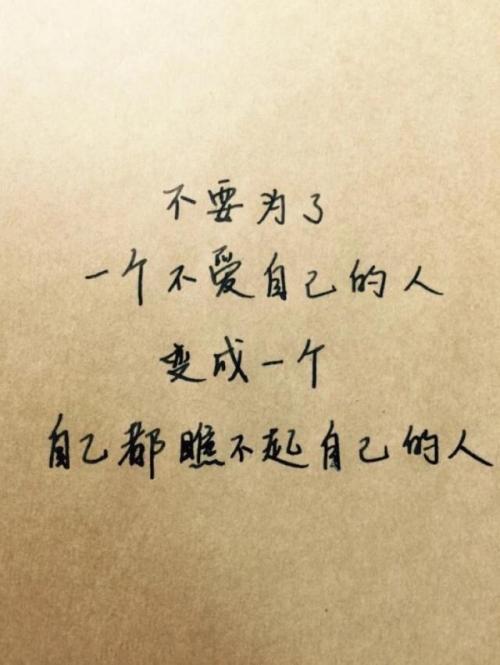 不要为了
一个不爱自己的人
变成一个
自己都瞧不起自己的人